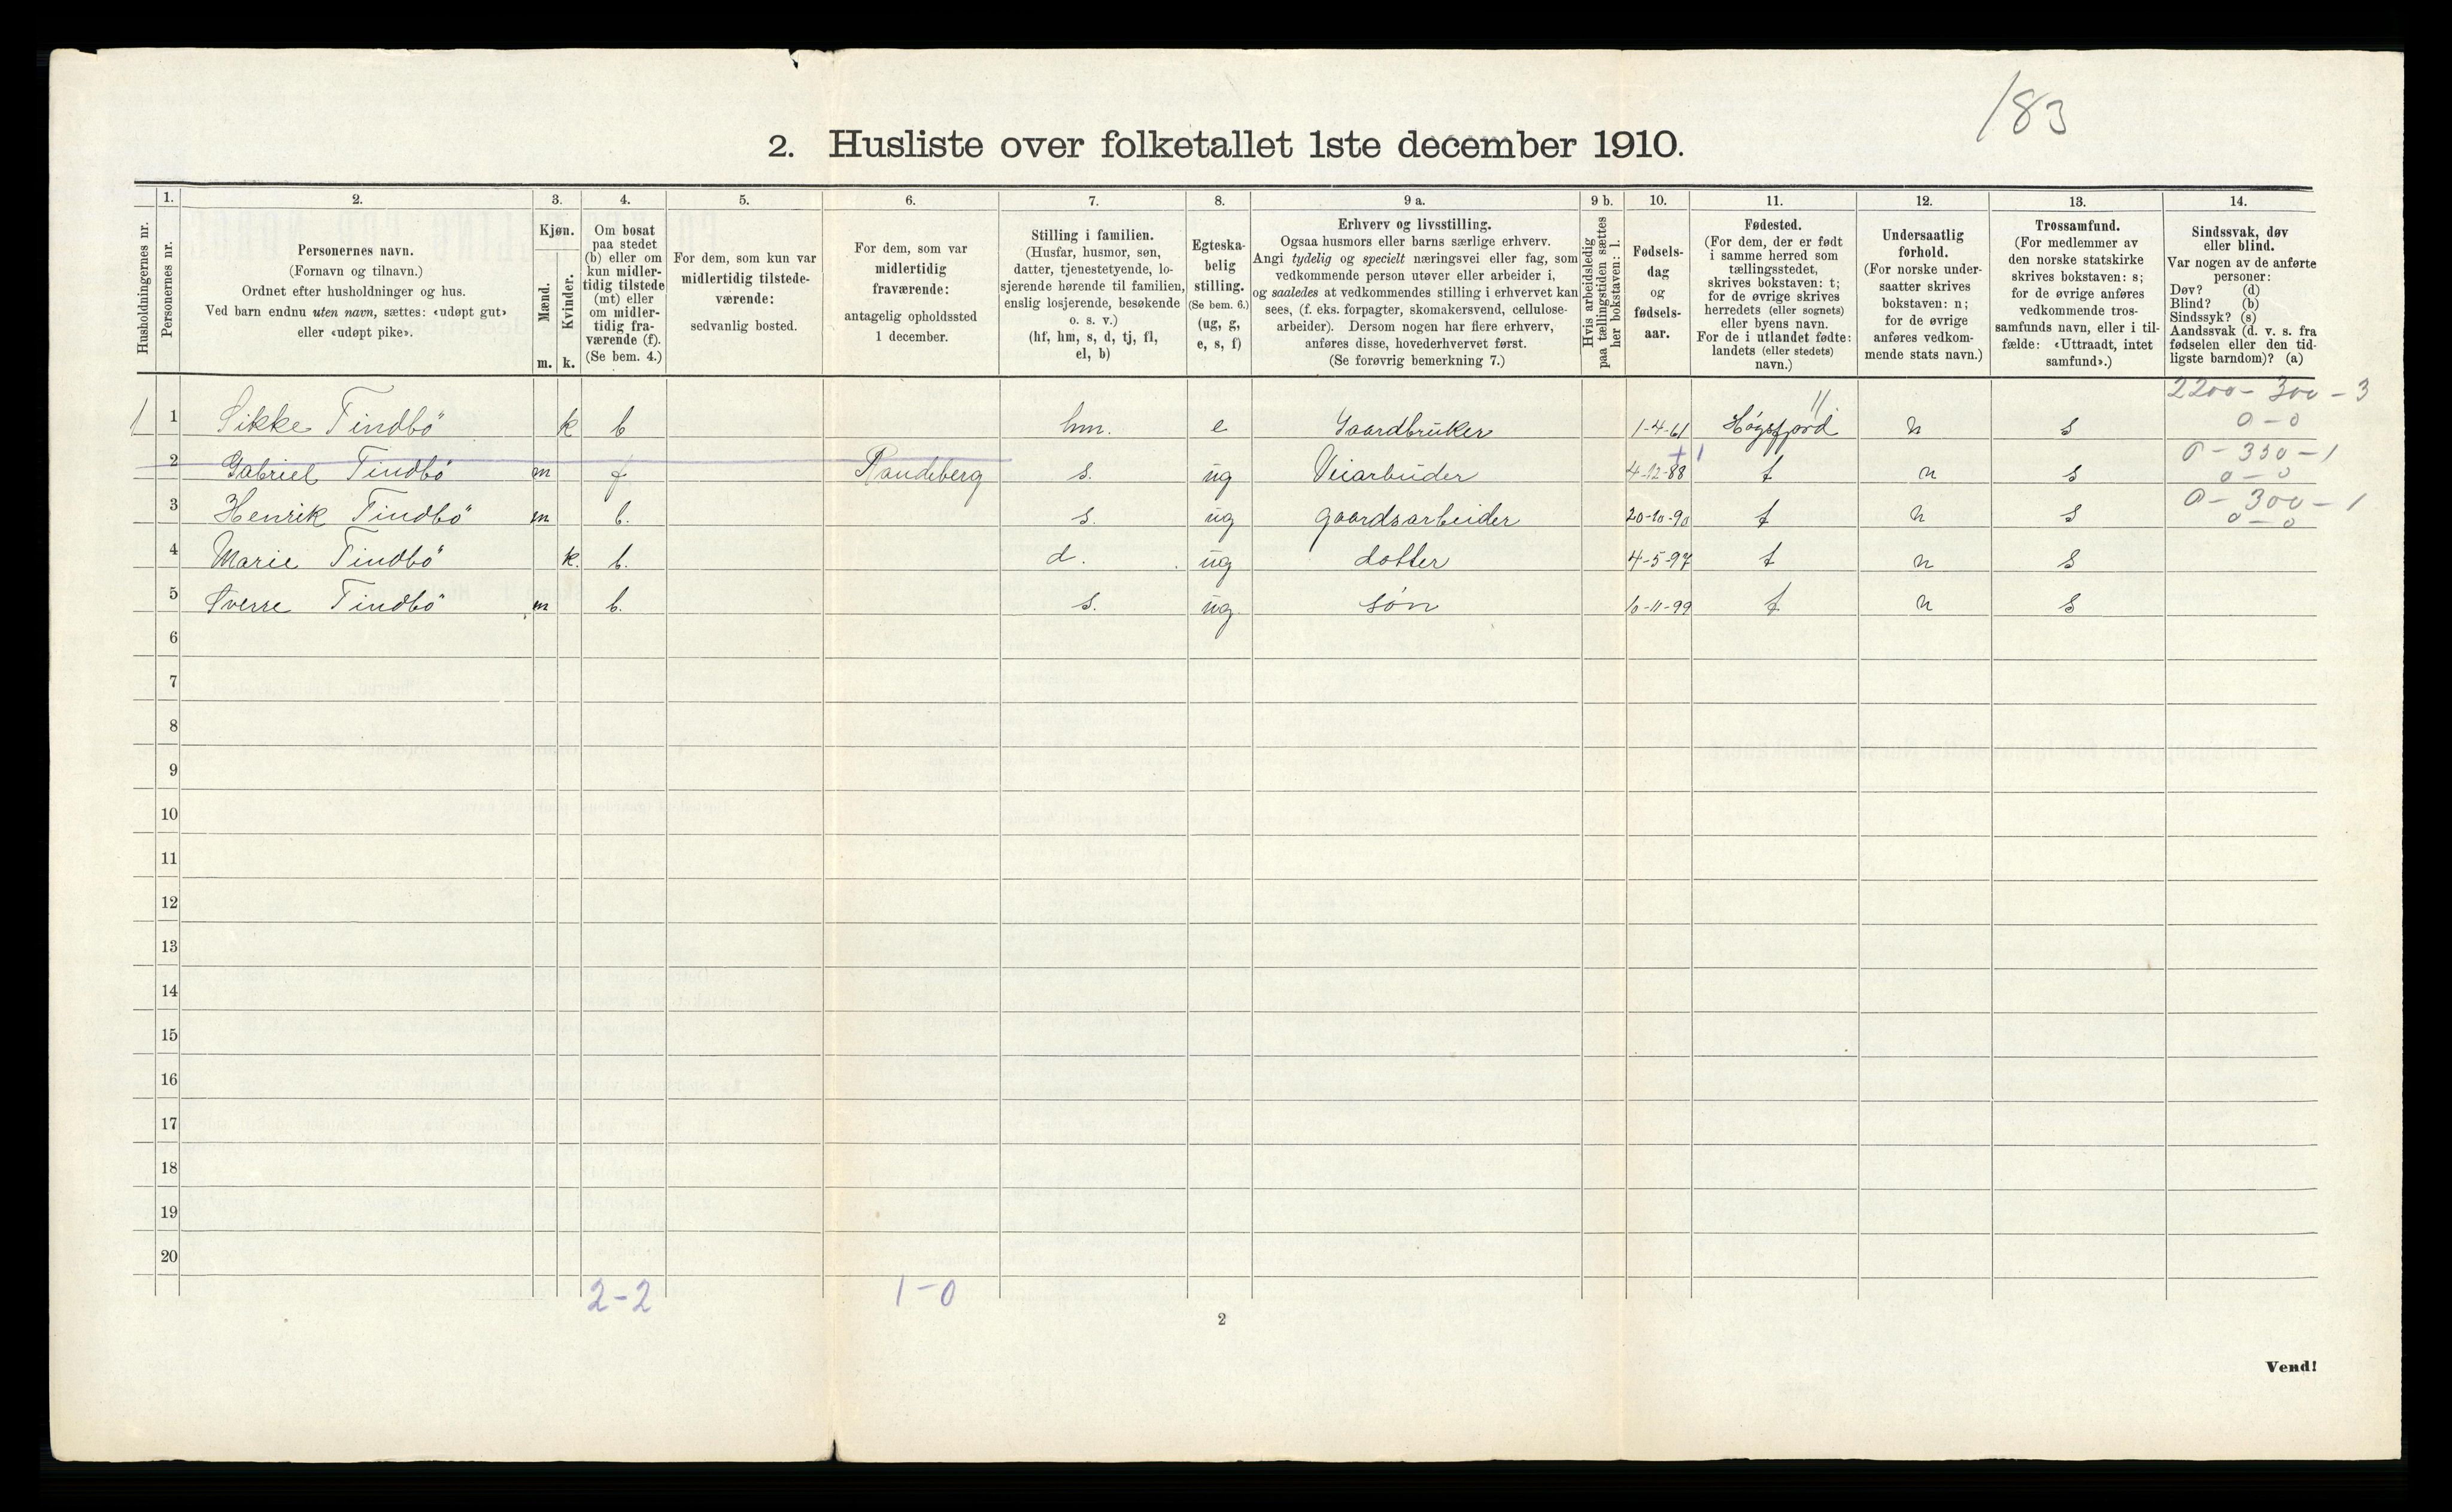 183
2. Husliste over folketallet 1ste december 1910.
Husholdningernes nr.
1.
Personernes nr.
2.
Personernes navn.
(Fornavn og tilnavn.)
Ordnet efter husholdninger og hus.
Ved barn endnu uten navn, sættes: «udøpt gut»
eller «udøpt pike».
3.
Kjøn.
Mænd.
Kvinder.
m. k.
4.
Om bosat
paa stedet
(b) eller om
kun midler-
tidig tilstede
(mt) eller
om midler-
tidig fra-
værende (f).
(Se bem. 4.)
5.
For dem, som kun var
midlertidig tilstede-
værende:
sedvanlig bosted.
6.
For dem, som var
midlertidig
fraværende:
antagelig opholdssted
1 december.
7.
Stilling i familien.
(Husfar, husmor, søn,
datter, tjenestetyende, lo-
sjerende hørende til familien,
enslig losjerende, besøkende
o. s. v.)
(hf, hm, s, d, tj, fl,
el, b)
8.
Egteska-
belig
stilling.
(Se bem. 6.)
(ug, g,
e, s, f)
9 a.
Erhverv og livsstilling.
Ogsaa husmors eller barns særlige erhverv.
Angi tydelig og specielt næringsvei eller fag, som
vedkommende person utøver eller arbeider i,
og saaledes at vedkommendes stilling i erhvervet kan
sees, (f. eks. forpagter, skomakersvend, cellulose-
arbeider). Dersom nogen har flere erhverv,
anføres disse, hovederhvervet først.
(Se forøvrig bemerkning 7.)
9 b.
Hvis arbeidsledig
paa tællingstiden sættes
her bokstaven: l.
10.
Fødsels-
dag
og
fødsels-
aar.
11.
Fødested.
(For dem, der er født
i samme herred som
tællingsstedet,
skrives bokstaven: t;
for de øvrige skrives
herredets (eller sognets)
eller byens navn.
For de i utlandet fødte:
landets (eller stedets)
navn.)
12.
Undersaatlig
forhold.
(For norske under-
saatter skrives
bokstaven: n;
for de øvrige
anføres vedkom-
mende stats navn.)
13.
Trossamfund.
(For medlemmer av
den norske statskirke
skrives bokstaven: s;
for de øvrige anføres
vedkommende tros-
samfunds navn, eller i til-
fælde: «Uttraadt, intet
samfund».)
14.
Sindssvak, døv
eller blind.
Var nogen av de anførte
personer:
Døv? (d)
Blind? (b)
Sindssyk? (s)
Aandssvak (d. v. s. fra
fødselen eller den tid-
ligste barndom)? (a)
2200 - 300 - 3
1 1 Sikke Tindbö k b hm. e Gaardbruker 1-4-61 Høgsfjord 11 n s 0 - 0
0 - 350 - 1
2 Gabriel Tindbö m f Randeberg s. ug Veiarbeider 4-12-88 + 1 t n s 0 - 0
0 - 300 - 1
3 Henrik Tindbö m b. s. ug gaardsarbeider 20-10-90 t n s 0 - 0
4 Marie Tindbö k. b. d. ug dotter 4-5-97 t n s
5 Sverre Tindbö m b. s. ug søn 10-11-99 t n s
6
7
8
9
10
11
12
13
14
15
16
17
18
19
20
2-2 1-0
2
Vend!